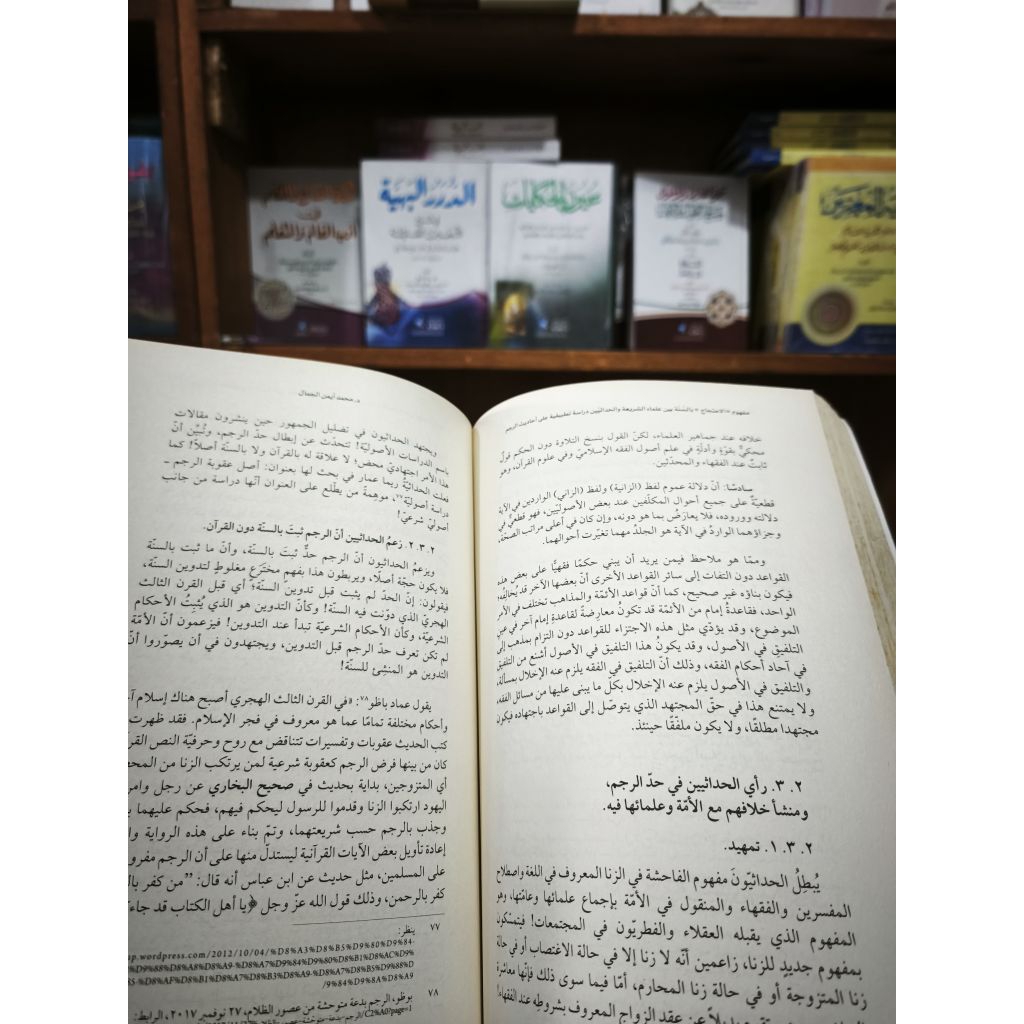 الدرر البهية
عيون الحكايات
أدب العالم والمتعلم
مفهوم «الاحتجاج» بالسنّة بين علماء الشريعة والحداثيين دراسة تطبيقية على أحاديث الرجم
خلافه عند جماهير العلماء، لكنّ القول بنسخ التلاوة دون الحكم قولٌ
محكيٌّ بقوّةٍ وأدلّةٍ في علم أصول الفقه الإسلاميّ وفي علوم القرآن، وهو
ثابتٌ عند الفقهاء والمحدّثين.
سادسًا: أنّ دلالة عموم لفظ (الزانية) ولفظ (الزاني) الواردين في الآية
قطعيّةٌ على جميع أحوال المكلّفين عند بعض الأصوليّين، فهو قطعيٌّ في
دلالته ووروده، فلا يعارَضُ بما هو دونه، وإن كان في أعلى مراتب الصحّة،
وجزاؤهما الواردُ في الآية هو الجلدُ مهما تغيّرت أحوالهما.
وممّا هو ملاحظ فيمن يريد أن يبني حكمًا فقهيًّا على بعض هذه
القواعد دون التفات إلى سائر القواعد الأخرى أنّ بعضها الآخر قد يُخالِفُه،
فيكون بناؤه غير صحيح، كما أنّ قواعد الأئمّة والمذاهب تختلف في الأمر
الواحد، فقاعدةُ إمام من الأئمّة قد تكونُ معارِضةً لقاعدةِ إمام آخر في عين
الموضوع، وقد يؤدّي مثل هذه الاجتزاء للقواعد دون التزام بمذهب إلى
التلفيق في الأصول، وقد يكونُ هذا التلفيق في الأصول أشنع من التلفيق
في آحاد أحكام الفقه، وذلك أنّ التلفيق في الفقه يلزم عنه الإخلال بمسألة،
والتلفيق في الأصول يلزم عنه الإخلال بكلّ ما يبنى عليها من مسائل الفقه،
ولا يمتنع هذا في حقّ المجتهد الذي يتوصّل إلى القواعد باجتهاده فيكون
مجتهدا مطلقًا، ولا يكون ملفّقًا حينئذ.
٢. ٣. رأي الحداثيين في حدّ الرجم،
ومنشأ خلافهم مع الأمّة وعلمائها فيه.
٢. ٣. ١. تمهيد.
يُبطِلُ الحداثيّونَ مفهوم الفاحشة في الزنا المعروف في اللغة واصطلاح
المفسرين والفقهاء والمنقول في الأمّة بإجماع علمائها وعامّتها، وهو
المفهوم الذي يقبله العقلاء والفطريّون في المجتمعات! فيتمسّكون
بمفهوم جديدٍ للزنا، زاعمين أنّه لا زنا إلا في حالة الاغتصاب أو في حالة
زنا المتزوجة أو في حالة زنا المحارم، أمّا فيما سوى ذلك فإنّها معاشرة
بديلاً عن عقد الزواج المعروف بشروطِه عند الفقهاء!
د. محمد أيمن الجمال
ويجتهد الحداثيون في تضليل الجمهور حين ينشرون مقالات
باسم الدراسات الأصوليّة! تتحدّث عن إبطال حدّ الرجم، وتُبيّن أنّ
هذا الأمر اجتهاديّ محض؛ لا علاقة له بالقرآن ولا بالسنّة أصلاً! كما
فعلت الحداثيّةُ ريما عمار في بحث لها بعنوان: أصل عقوبة الرجم –
دراسة أصوليّة٧٧، موهِمةً من يطّلع على العنوان أنّها دراسة من جانب
أصوليّ شرعيّ!
٢. ٣. ٢. زعمُ الحداثيين أنّ الرجم ثبتَ بالسنّة دون القرآن.
ويزعمُ الحداثيون أنّ الرجم حدٌّ ثبتَ بالسنّة، وأنّ ما ثبت بالسنّة
فلا يكون حجّة أصلًا، ويربطون هذا بفهمٍ مخترَعٍ مغلوطٍ لتدوين السنّة،
فيقولون: إنّ الحدّ لم يثبت قبل تدوين السنّة؛ أي قبل القرن الثالث
الهجريّ الذي دوّنت فيه السنّة! وكأنّ التدوين هو الذي يُثبِتُ الأحكام
الشرعيّة، وكأن الأحكام الشرعيّة تبدأ عند التدوين! فيزعمون أنّ الأمّة
لم تكن تعرف حدّ الرجم قبل التدوين، ويجتهدون في أن يصوّروا أنّ
التدوين هو المنشِئ للسنّة!
يقول عماد باظو٧٨: «في القرن الثالث الهجري أصبح هناك إسلام
وأحكام مختلفة تمامًا عما هو معروف في فجر الإسلام. فقد ظهرت
كتب الحديث عقوبات وتفسيرات تتناقض مع روح وحرفيّة النص
كان من بينها فرض الرجم كعقوبة شرعية لمن يرتكب الزنا من
أي المتزوجين، بداية بحديث في صحيح البخاري عن رجل
اليهود ارتكبوا الزنا وقدموا للرسول ليحكم فيهم، فحكم عليهما
وجذب بالرجم حسب شريعتهما، وتمّ بناء على هذه الرواية
إعادة تأويل بعض الآيات القرآنية ليستدلّ منها على أن الرجم
على المسلمين، مثل حديث عن ابن عباس أنه قال: "من كفر
كفر بالرحمن، وذلك قول الله عزّ وجل ﴿يا أهل الكتاب قد
٧٧ ينظر:
up.wordpress.com/2012/10/04/%D8%A3%D8%B5%D9%80%D9%84-
/%9%84%D9%8A%D8%A9
٧٨ بوظو، الرجم بدعة متوحشة من عصور الظلام، ٢٧ نوفمبر ٢٠١٧، الرابط: